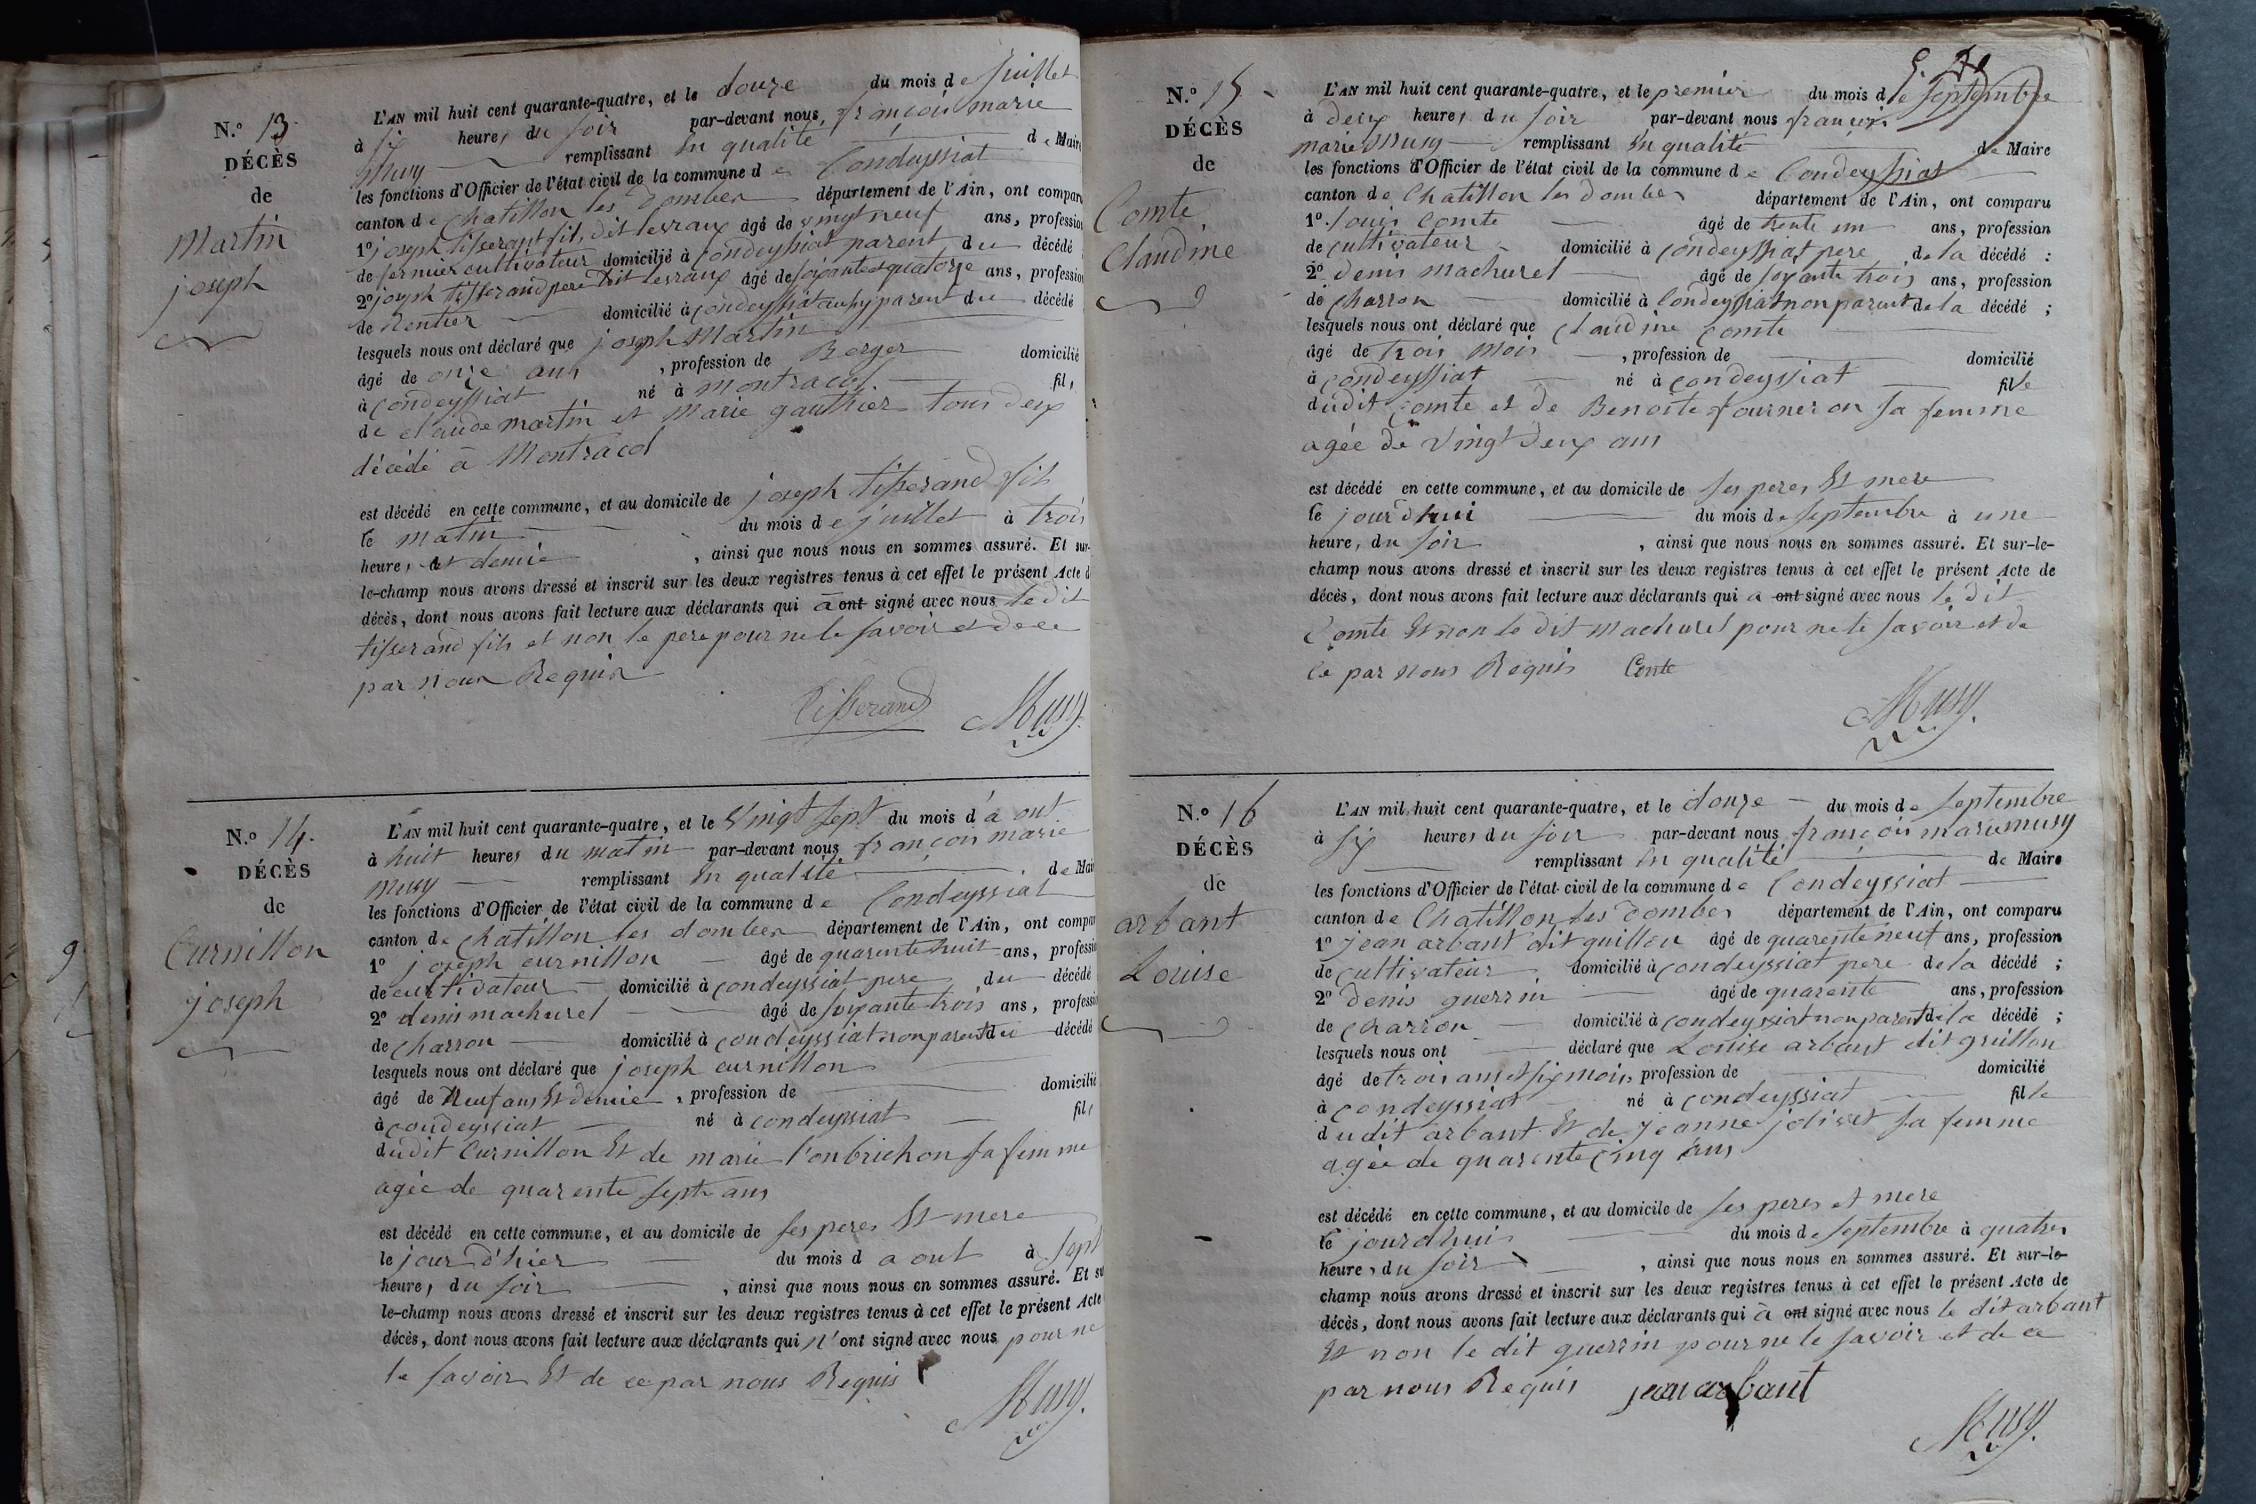 N.° 13
DÉCÈS
de
Martin
joseph
L'AN mil huit cent quarante-quatre, et le douze du mois de Juillet
à six heures du soir par-devant nous, françois marie
Musy remplissant en qualité de Maire
les fonctions d'Officier de l'état civil de la commune de Condeyssiat
canton de Chatillon les Dombes département de l'Ain, ont compar
1° joseph tisserant fils, dit lesraux âgé de vingt neuf ans, profession
de fermier cultivateur domicilié à condeyssiat parent du décédé
2° joseph tisserand pere Dit lesraux âgé de soixante et quatorze ans, profession
de Rentier domicilié à condeyssiat aussy parent du décédé
lesquels nous ont déclaré que joseph Martin
âgé de onze ans, profession de Berger domicilié
à condeyssiat né à montracol fils
de claude martin et Marie gauthier tous deux
décédé à Montracol
est décédé en cette commune, et au domicile de joseph tisserand fils
le matin du mois de juillet à trois
heures et demie, ainsi que nous nous en sommes assuré. Et sur-
le-champ nous avons dressé et inscrit sur les deux registres tenus à cet effet le présent Acte d
décès, dont nous avons fait lecture aux déclarants qui à ont signé avec nous ledit
tisserand fils et non le pere pour ne le savoir et de ce
par nous Requis
Tisserand Musy
N.° 14.
DÉCÈS
de
Curnillon
joseph
L'AN mil huit cent quarante-quatre, et le Vingt sept du mois d'aout
à huit heures du matin par-devant nous françois marie
Musy remplissant en qualité de Mai
les fonctions d'Officier de l'état civil de la commune de Condeyssiat
canton de Chatillon les dombes département de l'Ain, ont compar
1° joseph curnillon âgé de quarente huit ans, professi
de cultivateur domicilié à condeyssiat pere du décédé
2° denis machurel âgé de soixante trois ans, professi
de charron domicilié à condeyssiat non parent du décédé
lesquels nous ont déclaré que joseph curnillon
âgé de Neuf ans Et demie, profession de domicilié
à condeyssiat né à condeyssiat fils
dudit Curnillon Et de marie l'onbrichon sa femme
agée de quarente sept ans
est décédé en cette commune, et au domicile de ses peres Et mere
le jour d'hier du mois d aout à sept
heures du soir, ainsi que nous nous en sommes assuré. Et su
le-champ nous avons dressé et inscrit sur les deux registres tenus à cet effet le présent Acte
décès, dont nous avons fait lecture aux déclarants qui n'ont signé avec nous pour ne
le savoir Et de ce par nous Requis
Musy.
N.° 15
DÉCÈS
de
Comte
Claudine
L'AN mil huit cent quarante-quatre, et le premier du mois de Septembre
à deux heures du soir par-devant nous françois
marie Musy remplissant en qualité de Maire
les fonctions d'Officier de l'état civil de la commune de Condeyssiat
canton de Chatillon les Dombes département de l'Ain, ont comparu
1° Louis Comte âgé de trente un ans, profession
de cultivateur domicilié à condeyssiat pere de la décédé :
2° denis machurel âgé de soixante trois ans, profession
de charron domicilié à Condeyssiat non parent de la décédé ;
lesquels nous ont déclaré que claudine comte
âgé de trois mois, profession de domicilié
à condeyssiat né à condeyssiat fille
dudit comte et de Benoite fourneron sa femme
agée de vingt deux ans
est décédé en cette commune, et au domicile de ses peres Et mere
le jour d'hui du mois de septembre à une
heure, du soir, ainsi que nous nous en sommes assuré. Et sur-le-
champ nous avons dressé et inscrit sur les deux registres tenus à cet effet le présent Acte de
décès, dont nous avons fait lecture aux déclarants qui a ont signé avec nous le dit
Comte Et non le dit Machurel pour ne le savoir et de
ce par nous Requis Conte
Musy.
N.° 16
DÉCÈS
de
arbant
Louise
L'AN mil huit cent quarante-quatre, et le douze du mois de Septembre
à six heures du soir par-devant nous françois marie musy
remplissant en qualité de Maire
les fonctions d'Officier de l'état civil de la commune de Condeyssiat
canton de Chatillon les dombes département de l'Ain, ont comparu
1° jean arbant dit guillon âgé de quarente neuf ans, profession
de cultivateur domicilié à condeyssiat pere de la décédé ;
2° Denis guerrin âgé de quarente ans, profession
de charron domicilié à condeyssiat non parent de la décédé ;
lesquels nous ont déclaré que Louise arbant dit guillon
âgé de trois ans et six mois, profession de domicilié
à condeyssiat né à condeyssiat fille
dudit arbant Et de Jeanne jolivet sa femme
agée de quarente cinq ans
est décédé en cette commune, et au domicile de ses peres et mere
le jourdhui du mois de septembre à quatre
heures du soir, ainsi que nous nous en sommes assuré. Et sur-le-
champ nous avons dressé et inscrit sur les deux registres tenus à cet effet le présent Acte de
décès, dont nous avons fait lecture aux déclarants qui à ont signé avec nous le dit arbant
Et non le dit guerrin pour ne le savoir et de ce
par nous Requis jean arbant
Musy.